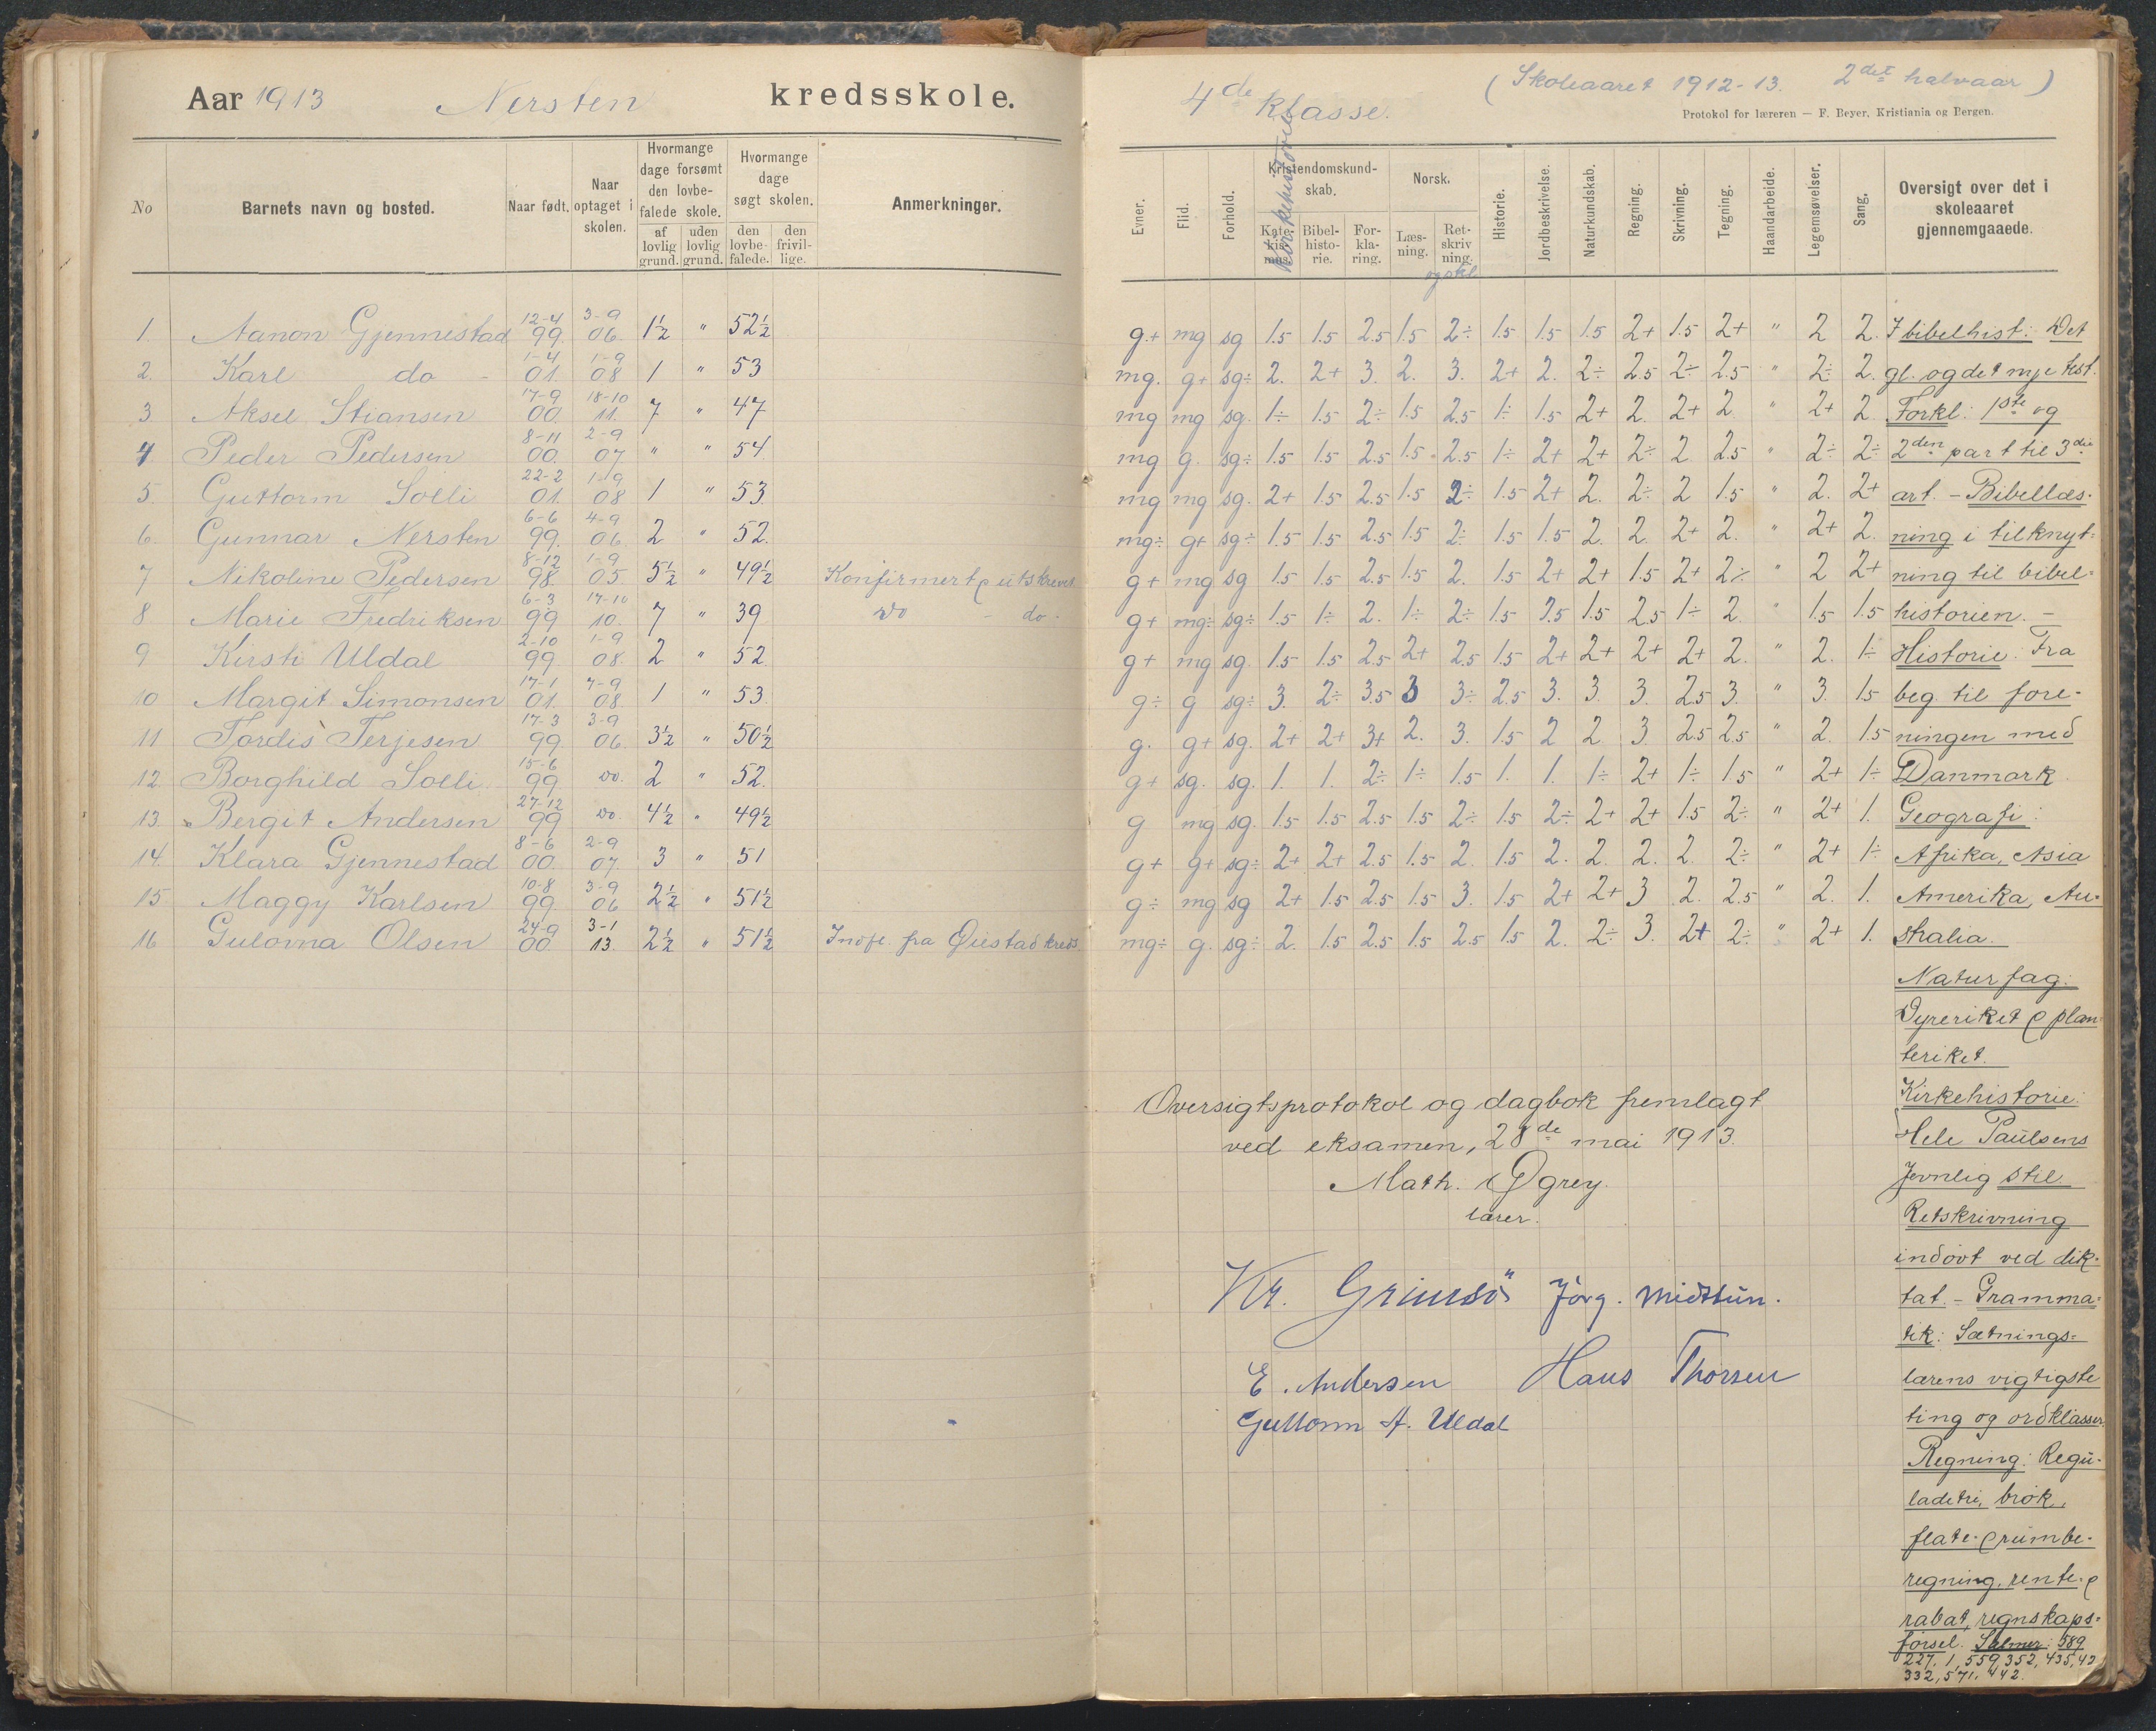 Aar 1913 Nersten kredsskole.
No
Barnets navn og bosted.
Naar født.
Naar optaget i skolen.
Hvormange dage forsømt den lovbefalede skole.
af lovlig grund.
uden lovlig grund.
Hvormange dage søgt skolen.
den lovbefalede.
den frivillige.
Anmerkninger.
1. Aanon Gjennestad 12-4 99. 3-9 06. 1½ " 52½
2. Karl do - 1-4 01. 1-9 08 1 " 53
3 Aksel Stiansen 17-9 00. 18-10 11. 7 " 47
4 Peder Pedersen 8-11 00. 2-9 07 " " 54
5. Guttorm Solli 22-2 01. 1-9 08 1 " 53
6. Gunnar Nersten 6-6 99. 4-9 06 2 " 52.
7 Nikoline Pedersen 8-12 98 1-9 05 5½ " 49½ Konfirmert & utskrevet
8. Marie Fredriksen 6-3 99 17-10 10. 7 " 39 Do - do.
9 Kirsti Uldal 2-10 99 1-9 08. 2 " 52
10 Margit Simonsen 17-1 01. 7-9 08 1 " 53
11 Tordis Terjesen 17-3 99. 3-9 06. 3½ " 50½
12. Borghild Solli 15-6 99 do. 2 " 52.
13. Bergit Andersen 27-12 99 do. 4½ " 49½
14. Klara Gjennestad 8-6 00. 2-9 07. 3 " 51
15 Maggy Karlsen 10-8 99 3-9 06 2½ " 51½
16 Guloma Olsen 24-9 00. 3-1 13. 2½ " 51½ Indfl. fra Øiestad kreds.
4de Klasse.
(Skoleaaret 1912-13. 2det halvaar)
Protokol for læreren — F. Beyer, Kristiania og Bergen.
Evner.
Flid.
Forhold.
Kristendomskundskab.
Katekismus.
Kirkehistorie
Bibelhistorie.
Forklaring.
Norsk.
Læsning.
Retskrivning.
og stil
Historie.
Jordbeskrivelse.
Naturkundskab.
Regning.
Skrivning.
Tegning.
Haandarbeide.
Legemsøvelser.
Sang.
Oversigt over det i skoleaaret gjennemgaaede.
g+ mg sg 1.5 1.5 2.5 1.5 2÷ 1.5 1.5 1.5 2+ 1.5 2+ " 2 2.
mg. g+ sg÷ 2. 2+ 3. 2. 3. 2+ 2. 2÷ 2.5 2÷ 2.5 " 2÷ 2.
mg mg sg. 1÷ 1.5 2÷ 1.5 2.5 1÷ 1.5 2+ 2. 2+ 2. " 2+ 2
mg g. sg÷ 1.5 1.5 2.5 1.5 2.5 1÷ 2+ 2+ 2÷ 2 2.5 " 2÷ 2÷
mg mg sg. 2+ 1.5 2.5 1.5 2÷ 1.5 2+ 2. 2÷ 2 1.5 " 2. 2+
mg÷ g+ sg÷ 1.5 1.5 2.5 1.5 2÷ 1.5 1.5 2. 2. 2+ 2. " 2+ 2.
g+ mg sg 1.5 1.5 2.5 1.5 2. 1.5 2+ 2+ 1.5 2+ 2÷ " 2 2+
g+ mg÷ sg÷ 1.5 1÷ 2. 1÷ 2÷ 1.5 2.5 1.5 2.5 1÷ 2 " 1.5 1.5
g+ mg sg. 1.5 1.5 2.5 2+ 2.5 1.5 2+ 2+ 2+ 2+ 2. " 2. 1÷
g÷ g sg÷ 3. 2÷ 3.5 3 3÷ 2.5 3. 3. 3. 2.5 3. " 3. 1.5
g. g+ sg. 2+ 2+ 3+ 2. 3. 1.5 2 2 3. 2.5 2.5 " 2. 1.5
g+ sg. sg. 1. 1. 2÷ 1÷ 1.5 1. 1. 1÷ 2+ 1÷ 1.5 " 2+ 1÷
g mg sg. 1.5 1.5 2.5 1.5 2÷ 1.5 2÷ 2+ 2+ 1.5 2÷ " 2+ 1.
g+ g+ sg÷ 2+ 2+ 2.5 1.5 2. 1.5 2. 2. 2. 2. 2÷ " 2+ 1÷
g÷ mg sg 2+ 1.5 2.5 1.5 3. 1.5 2+ 2+ 3 2. 2.5 " 2. 1.
mg÷ g. sg÷ 2. 1.5 2.5 1.5 2.5 1.5 2. 2÷ 3. 2+ 2÷ " 2+ 1.
I bibelhist: Det
gl. og det nye test.
Forkl: 1ste og
2den part til 3die
art. - Bibellæs-
ning i tilknyt=
ning til bibel=
historien. -
Historie: Fra
beg. til fore-
ningen med
Danmark
Geografi:
Afrika, Asia
Amerika, Au-
stralia.
Naturfag:
Dyreriket & plan-
teriket.
Kirkehistorie:
Hele Paulsens
Jevnlig stil
Retskrivning
indøvt ved dik-
tat. - Gramma=
tik: Sætnings=
lærens vigtigste
ting og ordklasser.
Regning: Regu-
ladetri, brøk,
flate- & rumbe-
regning, rente- &
rabat, regnskaps=
førsel. Salmer: 589
227, 1, 559, 352, 435, 42
332, 571, 442.
Oversigtsprotokol og dagbok fremlagt
ved eksamen, 28de mai 1913.
Math. Øgrey.
lærer.
Kr. Grimsö Jörg. Midttun.
E. Andersen Hans Thorsen
Guttorm A. Uldal